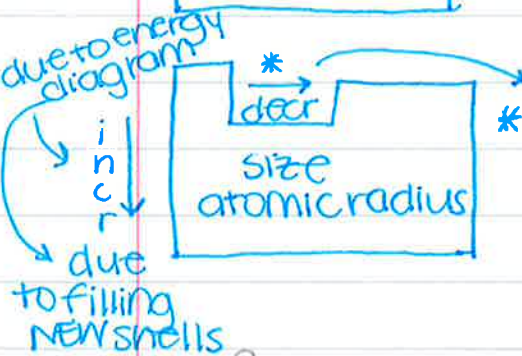 due to energy
diagram
*
decr
*
incr
size
atomic radius
due
to filling
NEW shells